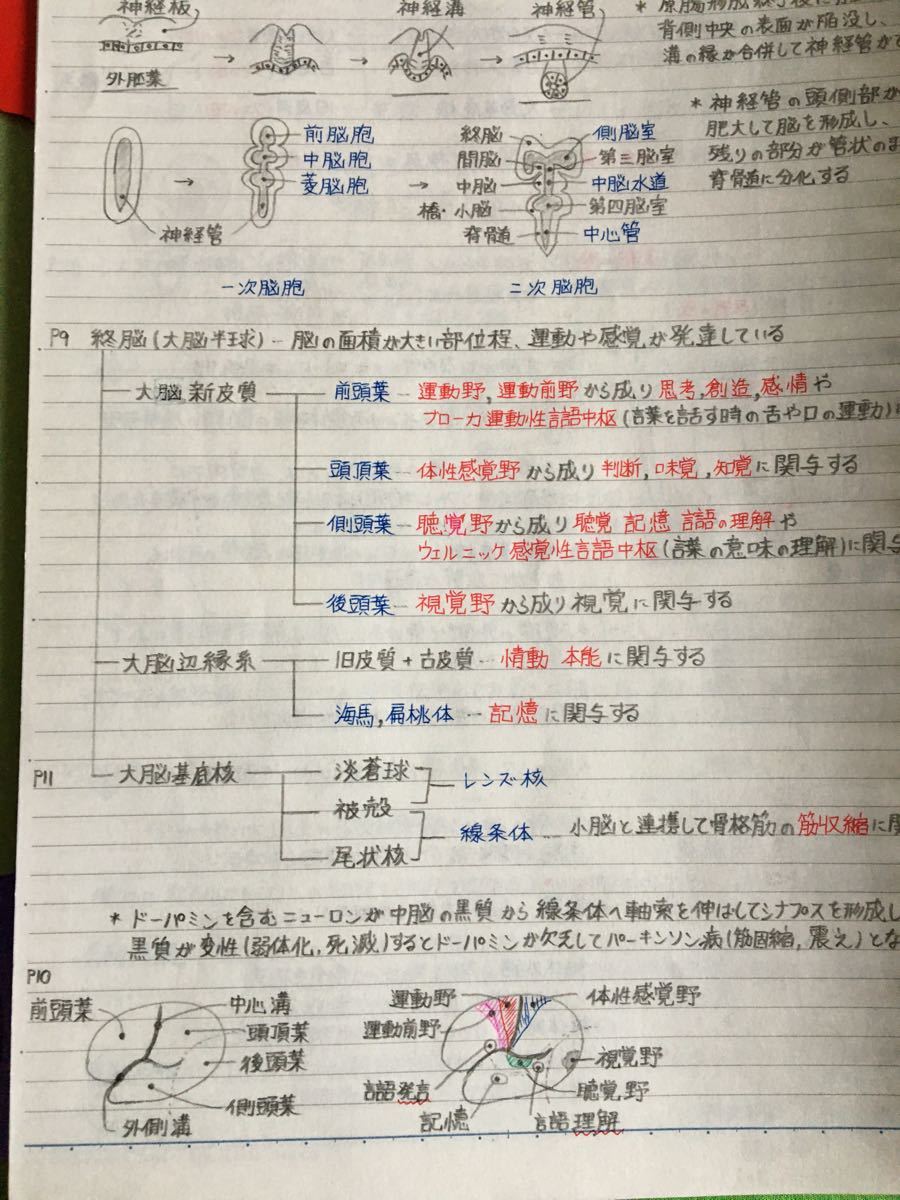 神経板
神経溝
神経管
外胚葉
* 原腸形成終了後に
背側中央の表面が陥没し、
溝の縁が合併して神経管がで
前脳胞
中脳胞
菱脳胞
神経管
一次脳胞
終脳
間脳
中脳
橋・小脳
脊髄
側脳室
第三脳室
中脳水道
第四脳室
中心管
二次脳胞
* 神経管の頭側部が
肥大して脳を形成し、
残りの部分が管状のま
脊髄に分化する
P9 終脳(大脳半球)‥脳の面積が大きい部位程、運動や感覚が発達している
大脳新皮質
前頭葉 ― 運動野,運動前野から成り思考,創造,感情や
ブローカ運動性言語中枢(言葉を話す時の舌や口の運動)に
頭頂葉 ― 体性感覚野から成り判断,味覚,知覚に関与する
側頭葉 ― 聴覚野から成り聴覚 記憶 言語の理解や
ウェルニッケ感覚性言語中枢(言葉の意味の理解)に関与
後頭葉 ― 視覚野から成り視覚に関与する
大脳辺縁系
旧皮質+古皮質‥情動 本能に関与する
海馬,扁桃体‥記憶に関与する
P11 大脳基底核
淡蒼球
被殻
尾状核
レンズ核
線条体‥小脳と連携して骨格筋の筋収縮に関
* ドーパミンを含むニューロンが中脳の黒質から線条体へ軸索を伸ばしてシナプスを形成し
黒質が変性(弱体化,死滅)するとドーパミンが欠乏してパーキンソン病(筋固縮,震え)とな
P10
前頭葉
中心溝
頭頂葉
後頭葉
側頭葉
外側溝
運動野
運動前野
言語発言
記憶
体性感覚野
視覚野
聴覚野
言語理解